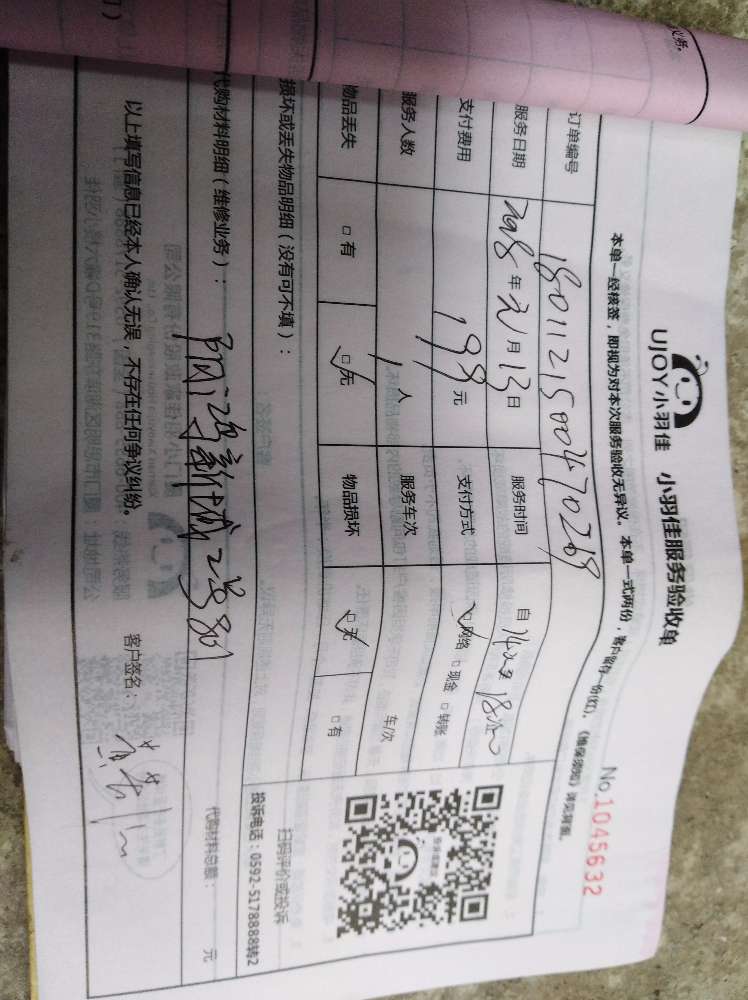 UJOY小羽佳 小羽佳服务验收单
No.1045632
本单一经核签，即视为对本次服务验收无异议。本单一式两份，客户留存一份(红)，《维保须知》详见背面。
订单编号 180112150047026
服务日期 2018年元月13日 服务时间 自
支付费用 199元 支付方式 ☑网络 □现金 □转账
服务人数 1人 服务车次 车/次
物品丢失 □有 ☑无 物品损坏 ☑无 □有
损坏或丢失物品明细（没有可不填）：
扫码评价或投诉
投诉电话：0592-5178888转2
代购材料明细（维修业务）： 新城2号801 代购材料总额： 元
以上填写信息已经本人确认无误，不存在任何争议纠纷。 客户签名：